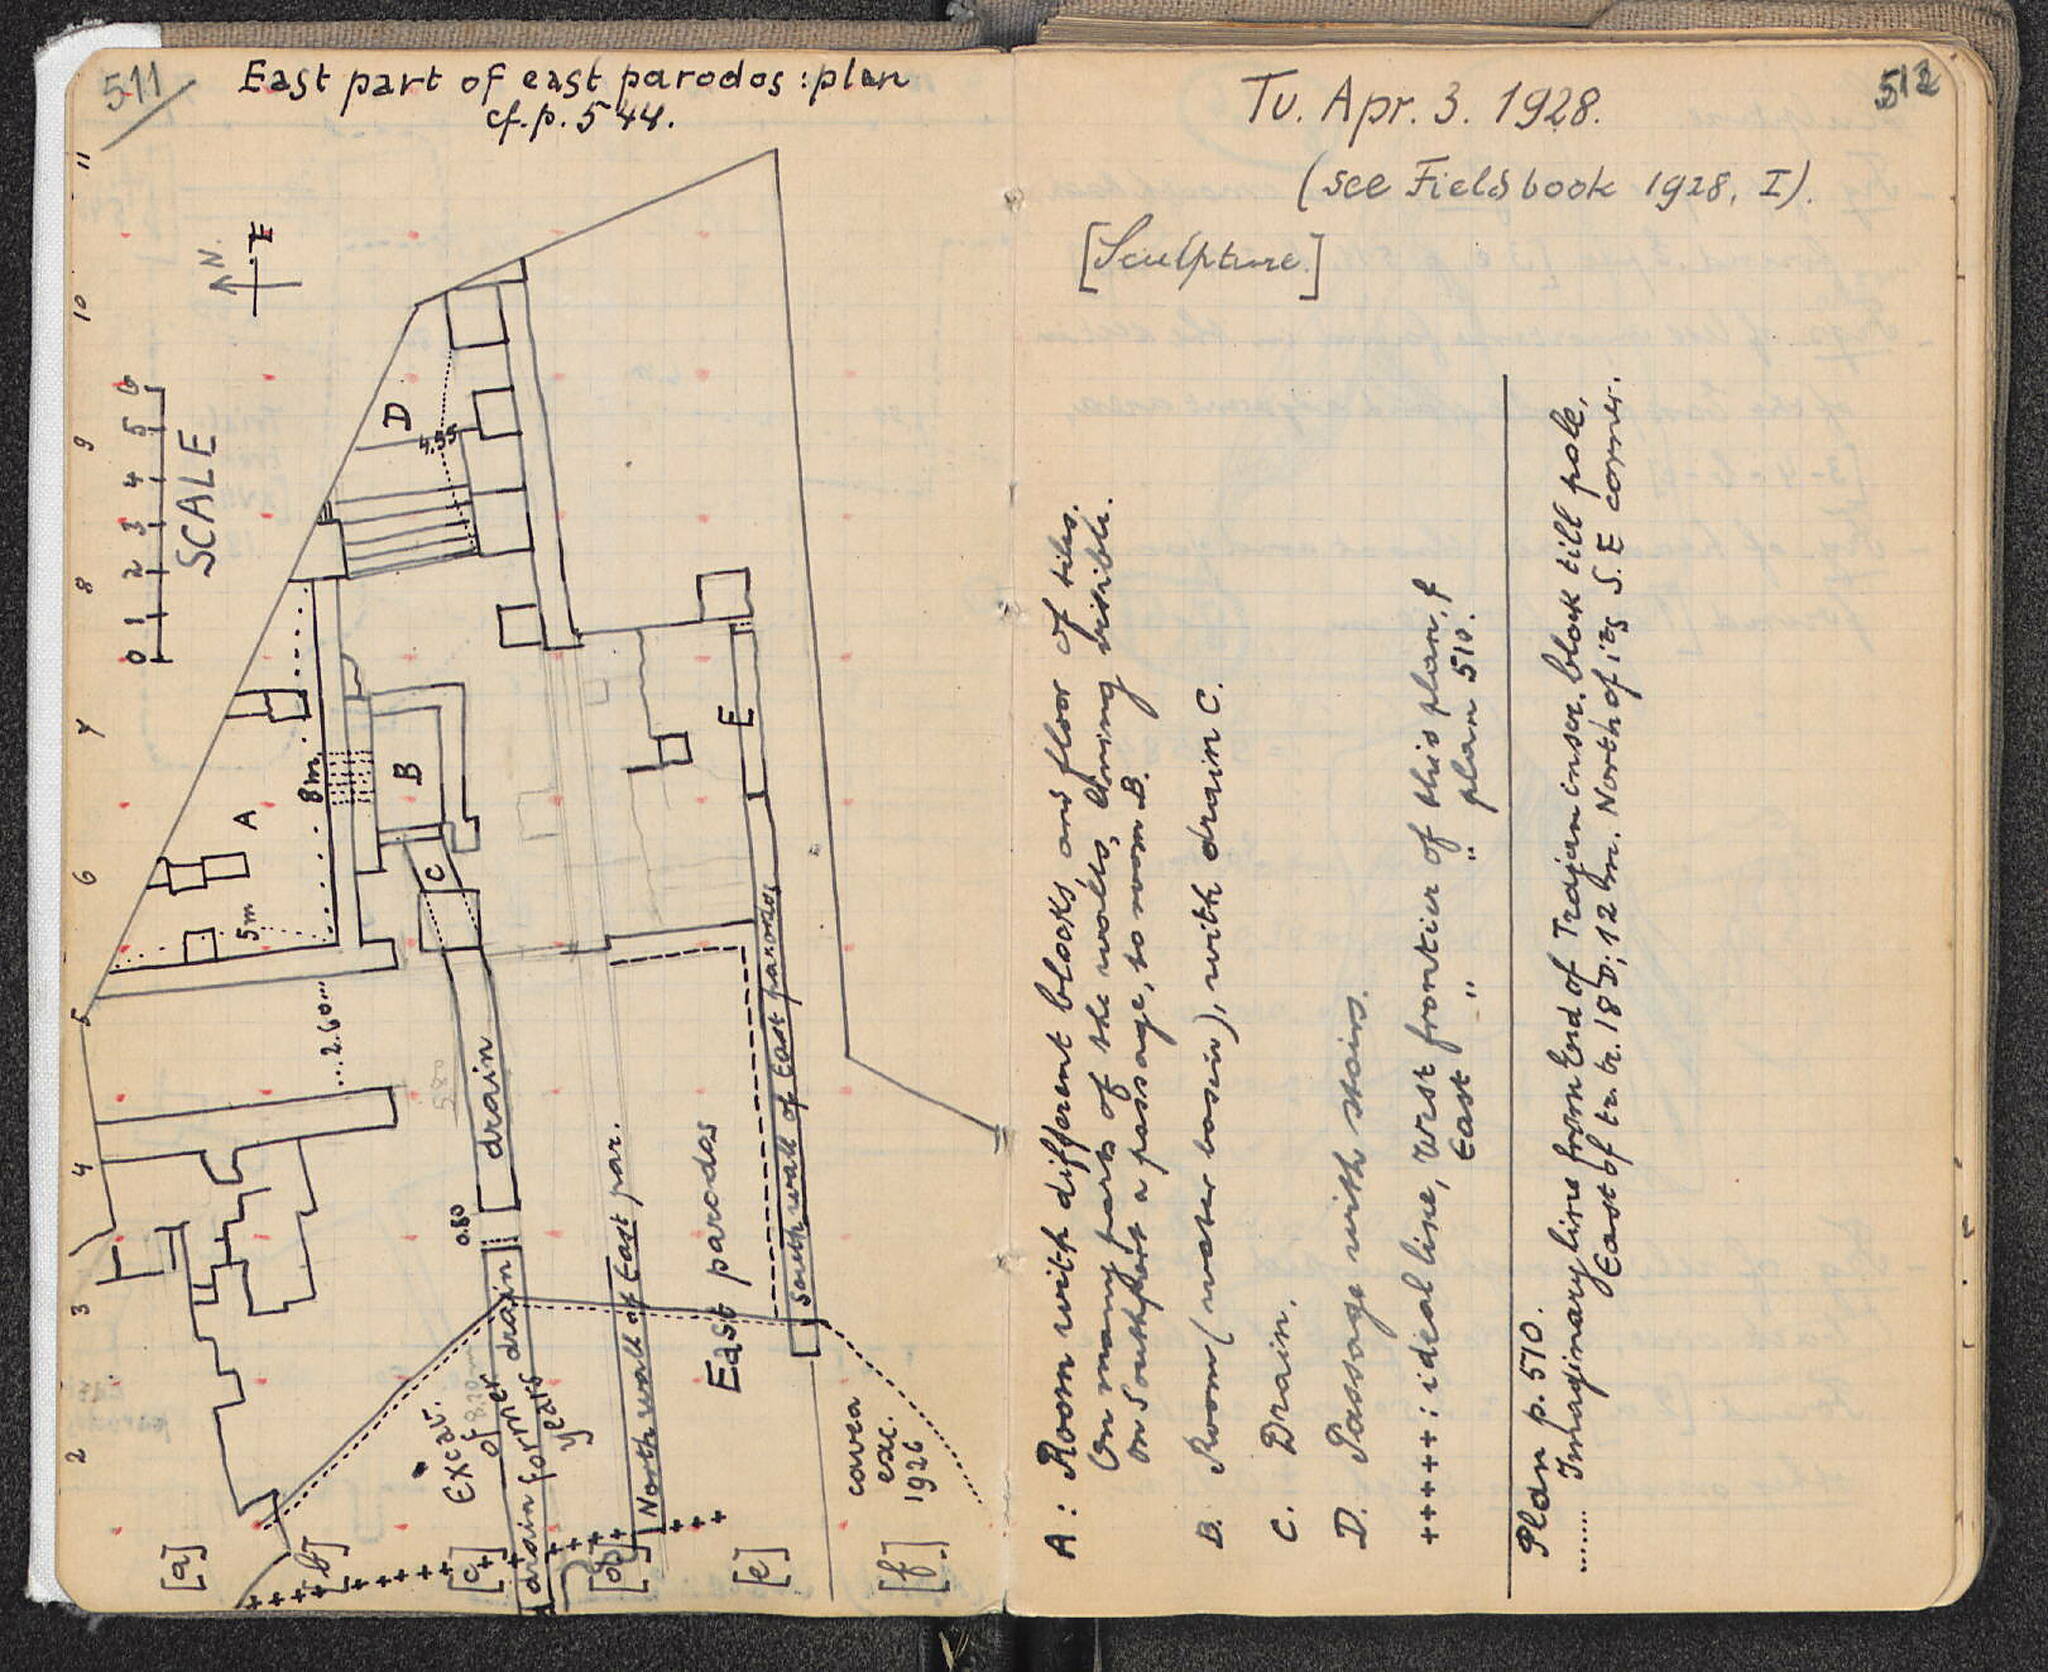 511
East part of east parodos : plan
cf. p. 544.
11
10
9
8
7
6
5
4
3
2
N.
E
0 1 2 3 4 5 6
SCALE
D
8m.
A
B
C
5m
E
...2.60m
5.80
drain
0.80
drain
Excav.
of
former
years
8.20m
drain
North wall of East par.
East parodos
South wall of East parodos
cavea
exc.
1926
[a]
[b]
[c]
[d]
[e]
[f]
512
Tu. Apr. 3. 1928.
(see Fieldsbook 1928, I).
[Sculpture.]
A : Room with different blocks, and floor of tiles.
On many parts of the walls, lining visible.
on South part a passage, to room B.
B. Room (water basin), with drain C.
C. Drain.
D. Passage with stairs.
++++++ : ideal line, West frontier of this plan, f
East " " plan 510.
Plan p. 510.
....... Imaginary line from End of Trajan inscr. block till pole,
East of tr. br. 18 D; 12 m. North of its S. E corner.